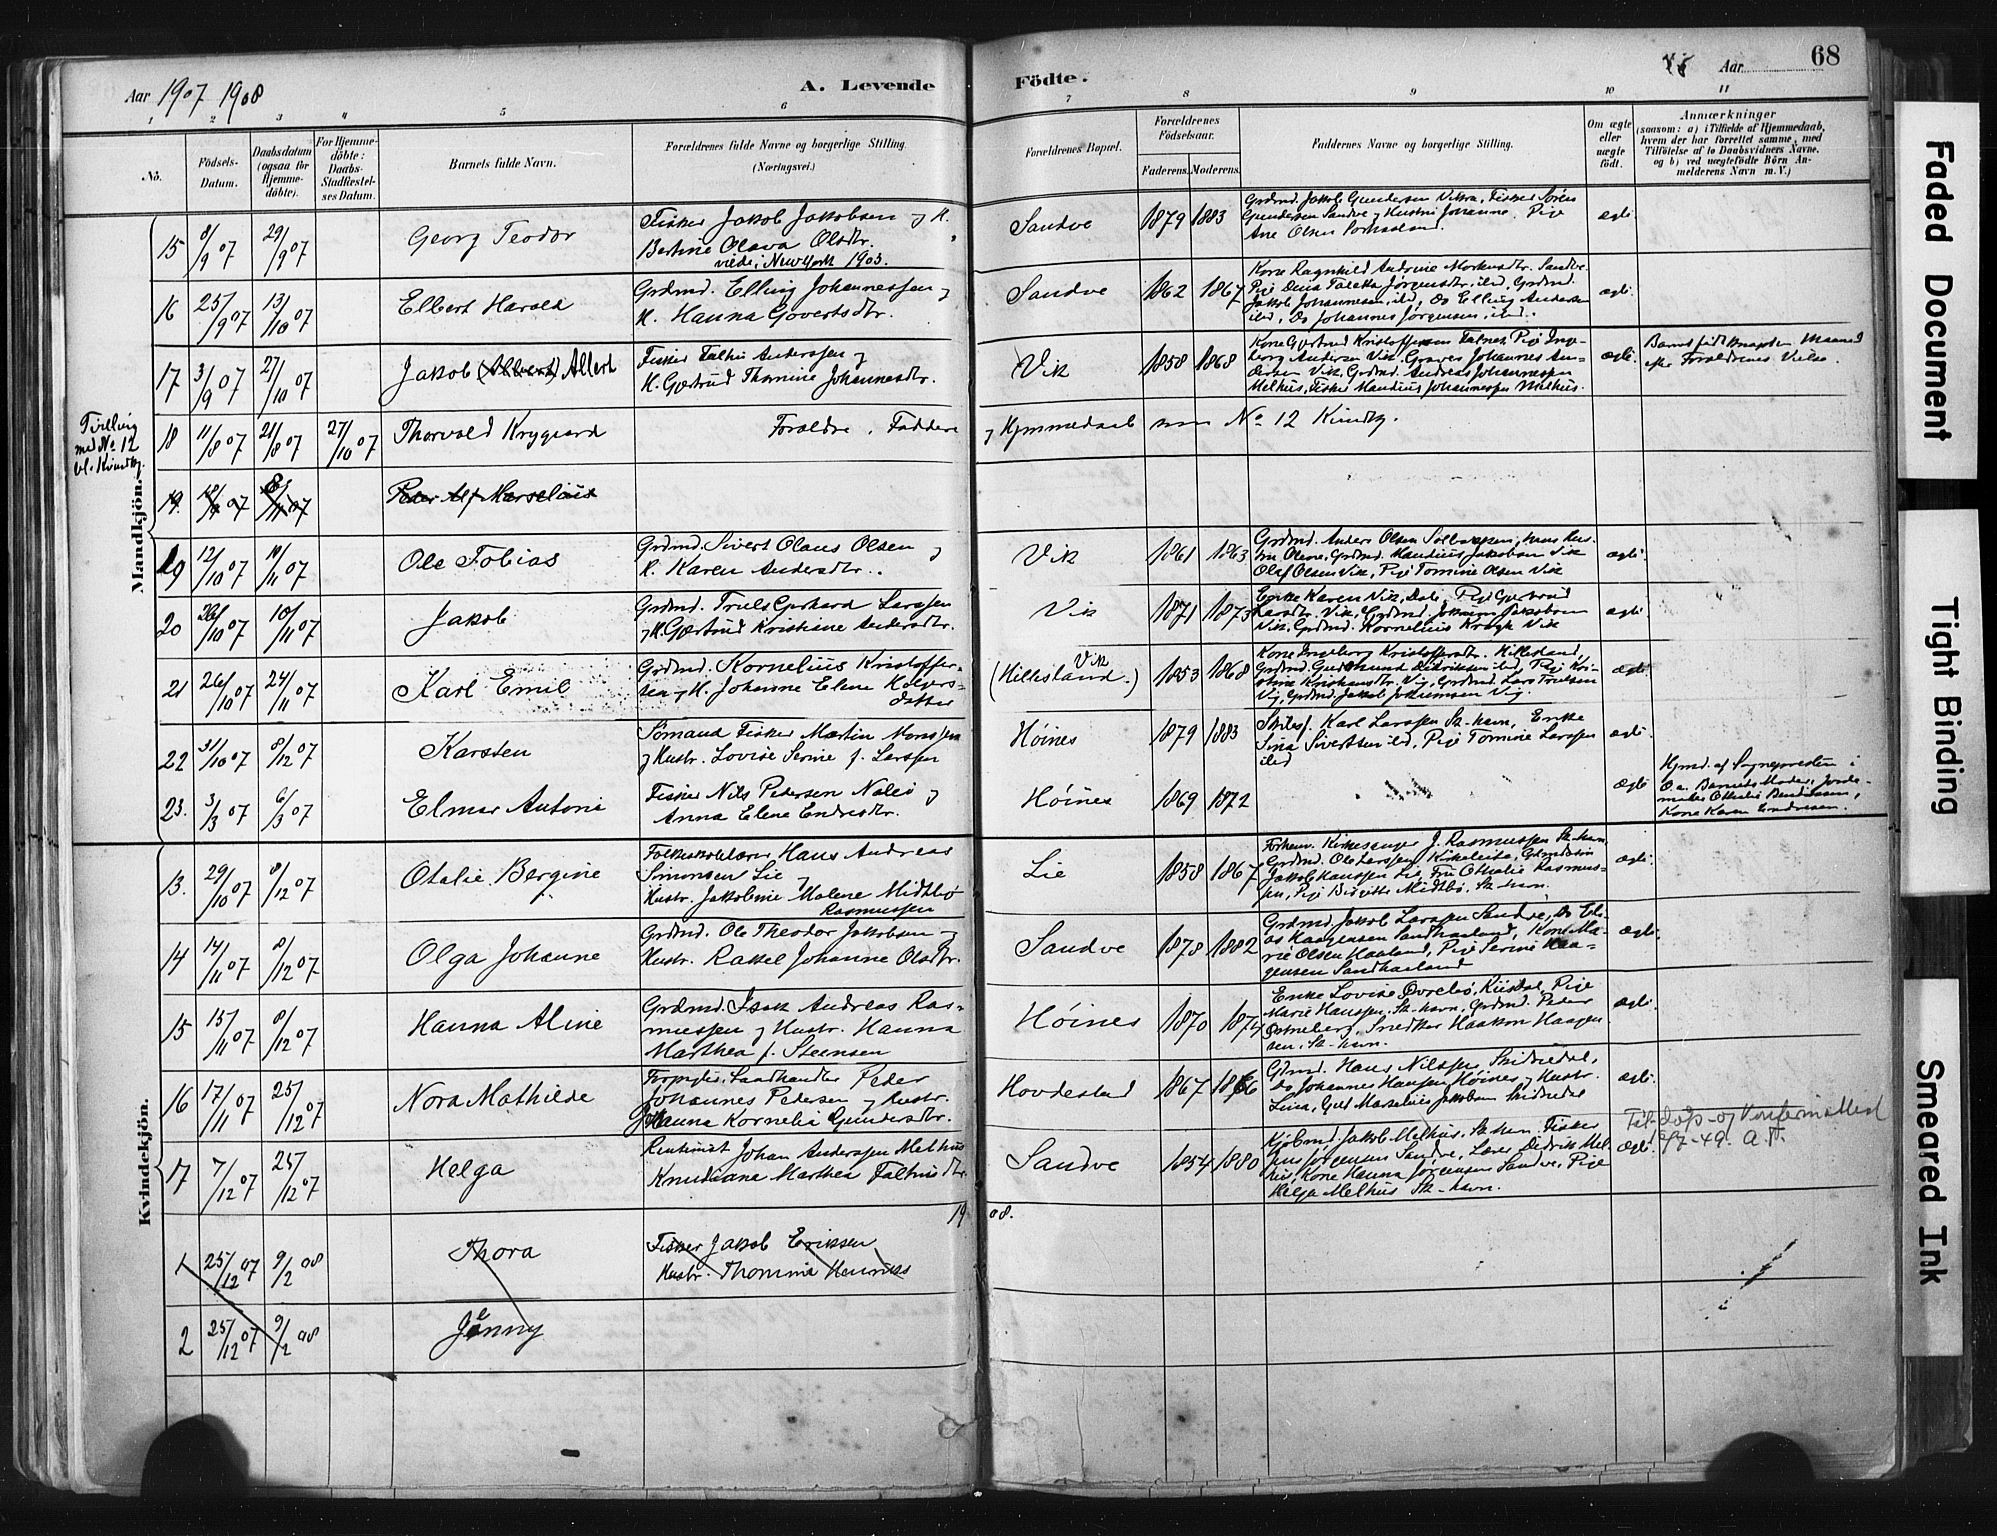 Aar 1907 1908
A. Levende
Födte.
Aar
68
1 2 3 4 5 6 7 8 9 10 11
No.
Födsels-
Datum.
Daabsdatum
(ogsaa for
Hjemme-
döbte).
For Hjemme-
döbte:
Daabs-
Stadfæstel-
ses Datum.
Barnets fulde Navn.
Forældrenes fulde Navne og borgerlige Stilling
(Næringsvei.)
Forældrenes Bopæl.
Forældrenes
Födselsaar.
Faderens.
Moderens.
Faddernes Navne og borgerlige Stilling.
Om ægte
eller
uægte
født.
Anmærkninger
(saasom: a) i Tilfælde af Hjemmedaab,
hvem der har forrettet samme, med
Tilföielse af to Daabsvidners Navne,
og b) ved uægtefödte Börn An-
melderens Navn m. V.)
Mandkjön.
15 8/9 07 29/9 07 Georg Teodor
Fisker Jakob Jakobsen og H.
Bertine Olava Olsdtr.
viede i NewYork 1903.
Sandve 1879 1883
Grdmd. Jakob Gundersen Vikra, Fisker Sören
Gundersen Sandve og Hustru Johanne, Pige
Ane Olsen
ægte
16 25/9 07 13/10 07 Elbert Harald
Grdmd. Elling Johannessen og
H. Hanna Govertsdtr.
Sandve 1862 1867
Kone Ragnhild Andrine Sandve.
Pige Jørgensdtr. ibd, Grdmd.
Jakob Johannesen, ibd, Do Elling Andersen
ibd, Do Johannes Jørgensen, ibd.
ægte
17 3/9 07 27/10 07 Jakob (Albert) Allert
Fisker Falhu Anderssen og
H. Gjertrud Thomine Johannesdtr.
Vik 1858 1868
Kone Gjertrud Kristoffersen Falnes, Pige Inge-
borg Andersen Vik, Graver Johannes An-
dersen Vik, Grdmd. Andreas Johannessen
Melhus, Fisker Mandius Johannessen Melhus.
ægte
Barnet født Maaned
efter Forældrenes Vielse.
Tvilling
med No 12
bl. Kvindkj.
18 11/8 07 21/8 07 27/10 07 Thorvald Krygaard
Forældre, Faddere
og Hjemmedaab som No 12 Kvindkj.
19. 07 07 Peder Alf Marselius
19 12/10 07 10/11 07 Ole Tobias
Grdmd. Sivert Olaus Olsen og
H. Karen Andersdtr.
Vik 1861 1863
Grdmd. Anders Olsen hans Hus-
tru Olene, Grdmd. Mandius Jakobsen Vik
Olaf Olsen Vik, Pige Tomine Olsen Vik
ægte
20 26/10 07 10/11 07 Jakob
Grdmd. Truls Gerhard Larssen
og H. Gjertrud Kristiane Andersdtr.
Vik 1871 1873
Enke Karen Vik, Pige Gjertrud
Larsdtr. Vik, Grdmd. Jokum Jakobsen
Vik, Grdmd. Kornelius Vik
ægte
21 26/10 07 24/11 07 Karl Emil
Grdmd. Kornelius Kristoffer-
sen og H. Johanne Elene
datter
Vik
(Hillesland.) 1853 1868
Kone Ingeborg Kristoffersdtr. Hillesland,
Grdmd. Gudmund Didriksen ibd, Pige Kri-
stine Vig, Grdmd. Lars Trulsen
Vig, Grdmd. Jakob Jokumsen Vig.
ægte
22 31/10 07 8/12 07 Karsten
Sömand Fisker Martin Monssen
og Hustr. Lovise Serine f. Larssen
Høines 1879 1883
Karl Larssen Sk-havn, Enke
Sina Sivertsen ibd, Pige Tomine Larssen
ibd
ægte
23. 3/3 07 6/3 07 Elmar Antoni
Fisker Nils Pedersen og
Anna Elene Endresdtr.
Høines 1869 1872
ægte
Hjmd. af Sognepresten i
Barnets Moder, Jorde-
moder Othelie Bendiksen,
Kone Karen Endresen.
Kvindekjön.
13. 29/10 07 8/12 07 Otalie Bergine
Folkeskolelærer Hans Andreas
Simonsen Lie og
Hustr. Jakobine Malene Midtbø
Rasmussen
Lie 1858 1867
Forhenv. Kirkesanger J. Rasmussen Sk-havn,
Grdmd. Ole Larssen Kirkeleite,
Jakob Hanssen Lie, Fru Othelie Rasmus-
sen, Pige Birgitte Midtbø, Sk-havn.
ægte
14 14/11 07 8/12 07 Olga Johanne
Grdmd. Ole Theodor Jakobsen og
Hustr. Rakel Johanne Olsdtr.
Sandve 1878 1882
Grdmd Jakob Larssen Sandve, Do Eli-
as Haagensen Sandhaaland, Kone Ma-
rie Olsen Haaland, Pige Serine Haa-
gensen Sandhaaland
ægte
15 15/11 07 8/12 07 Hanna Aline
Grdmd. Isak Andreas Ras-
mussen og Hustr. Hanna
Marthea f. Steensen
Høines 1870 1874
Enke Lovise Øvrebø, Pige
Marie Hanssen, Sk-havn, Grdmd. Peder
Østneberg, Snedker Haakon Haagen
sen, Sk-havn.
ægte
16 17/11 07 25/12 07 Nora Mathilde
Landhandler Peder
Johannes Pedersen og Hustr.
Hanna Kornelia Gundersdtr.
Hovdestad 1867 1866
Grdmd. Hans Nilssen, Stidredal,
do Johannes Hansen Høines og Hustr.
Lina, Marselius Jakobsen Stidredal
ægte
17 7/12 07 25/12 07 Helga
Rentenist Johan Anderssen Melhus
Knudiana Marthea Falhusdtr.
Sandve 1854 1880
Kjøbmd. Jakob Melhus, Sk-havn, Fisker
Jørgensen Sandve, Lærer Didrik Mel-
hus, Kone Hanna Jørgensen Sandve, Pige
Helga Melhus Sk-havn.
ægte
Fik dåps- og konfirm.attest
A.T.
1908.
1 25/12 07 9/2 08 Thora
Fisker Jakob Eriksen
Hustr. Thomine
2 25/12 07 9/2 08 Jenny
Faded Document
Tight Binding
Smeared Ink